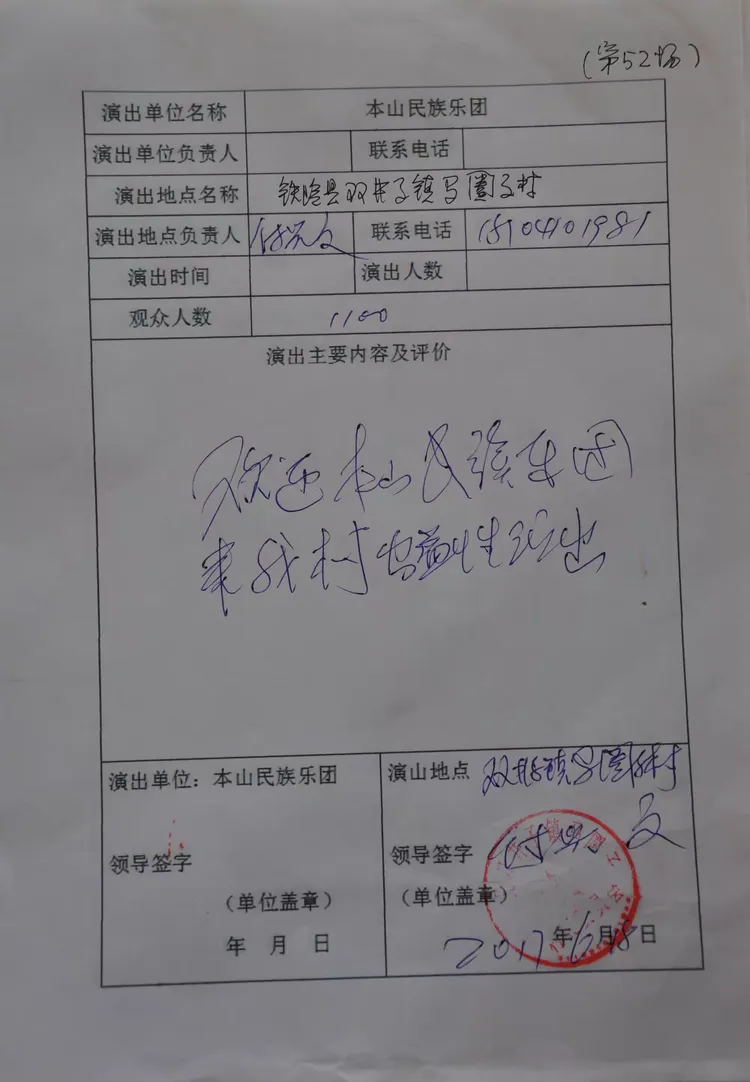 (第52场)
演出单位名称 本山民族乐团
演出单位负责人 联系电话
演出地点名称 铁岭县双井子镇马圈子村
演出地点负责人 付兴文 联系电话
演出时间 演出人数
观众人数 1100
演出主要内容及评价
欢迎本山民族乐团
来我村公益性演出
演出单位：本山民族乐团 演山地点 双井子镇马圈子村
领导签字 领导签字 付兴文
（单位盖章） （单位盖章）
年 月 日 2017年6月18日